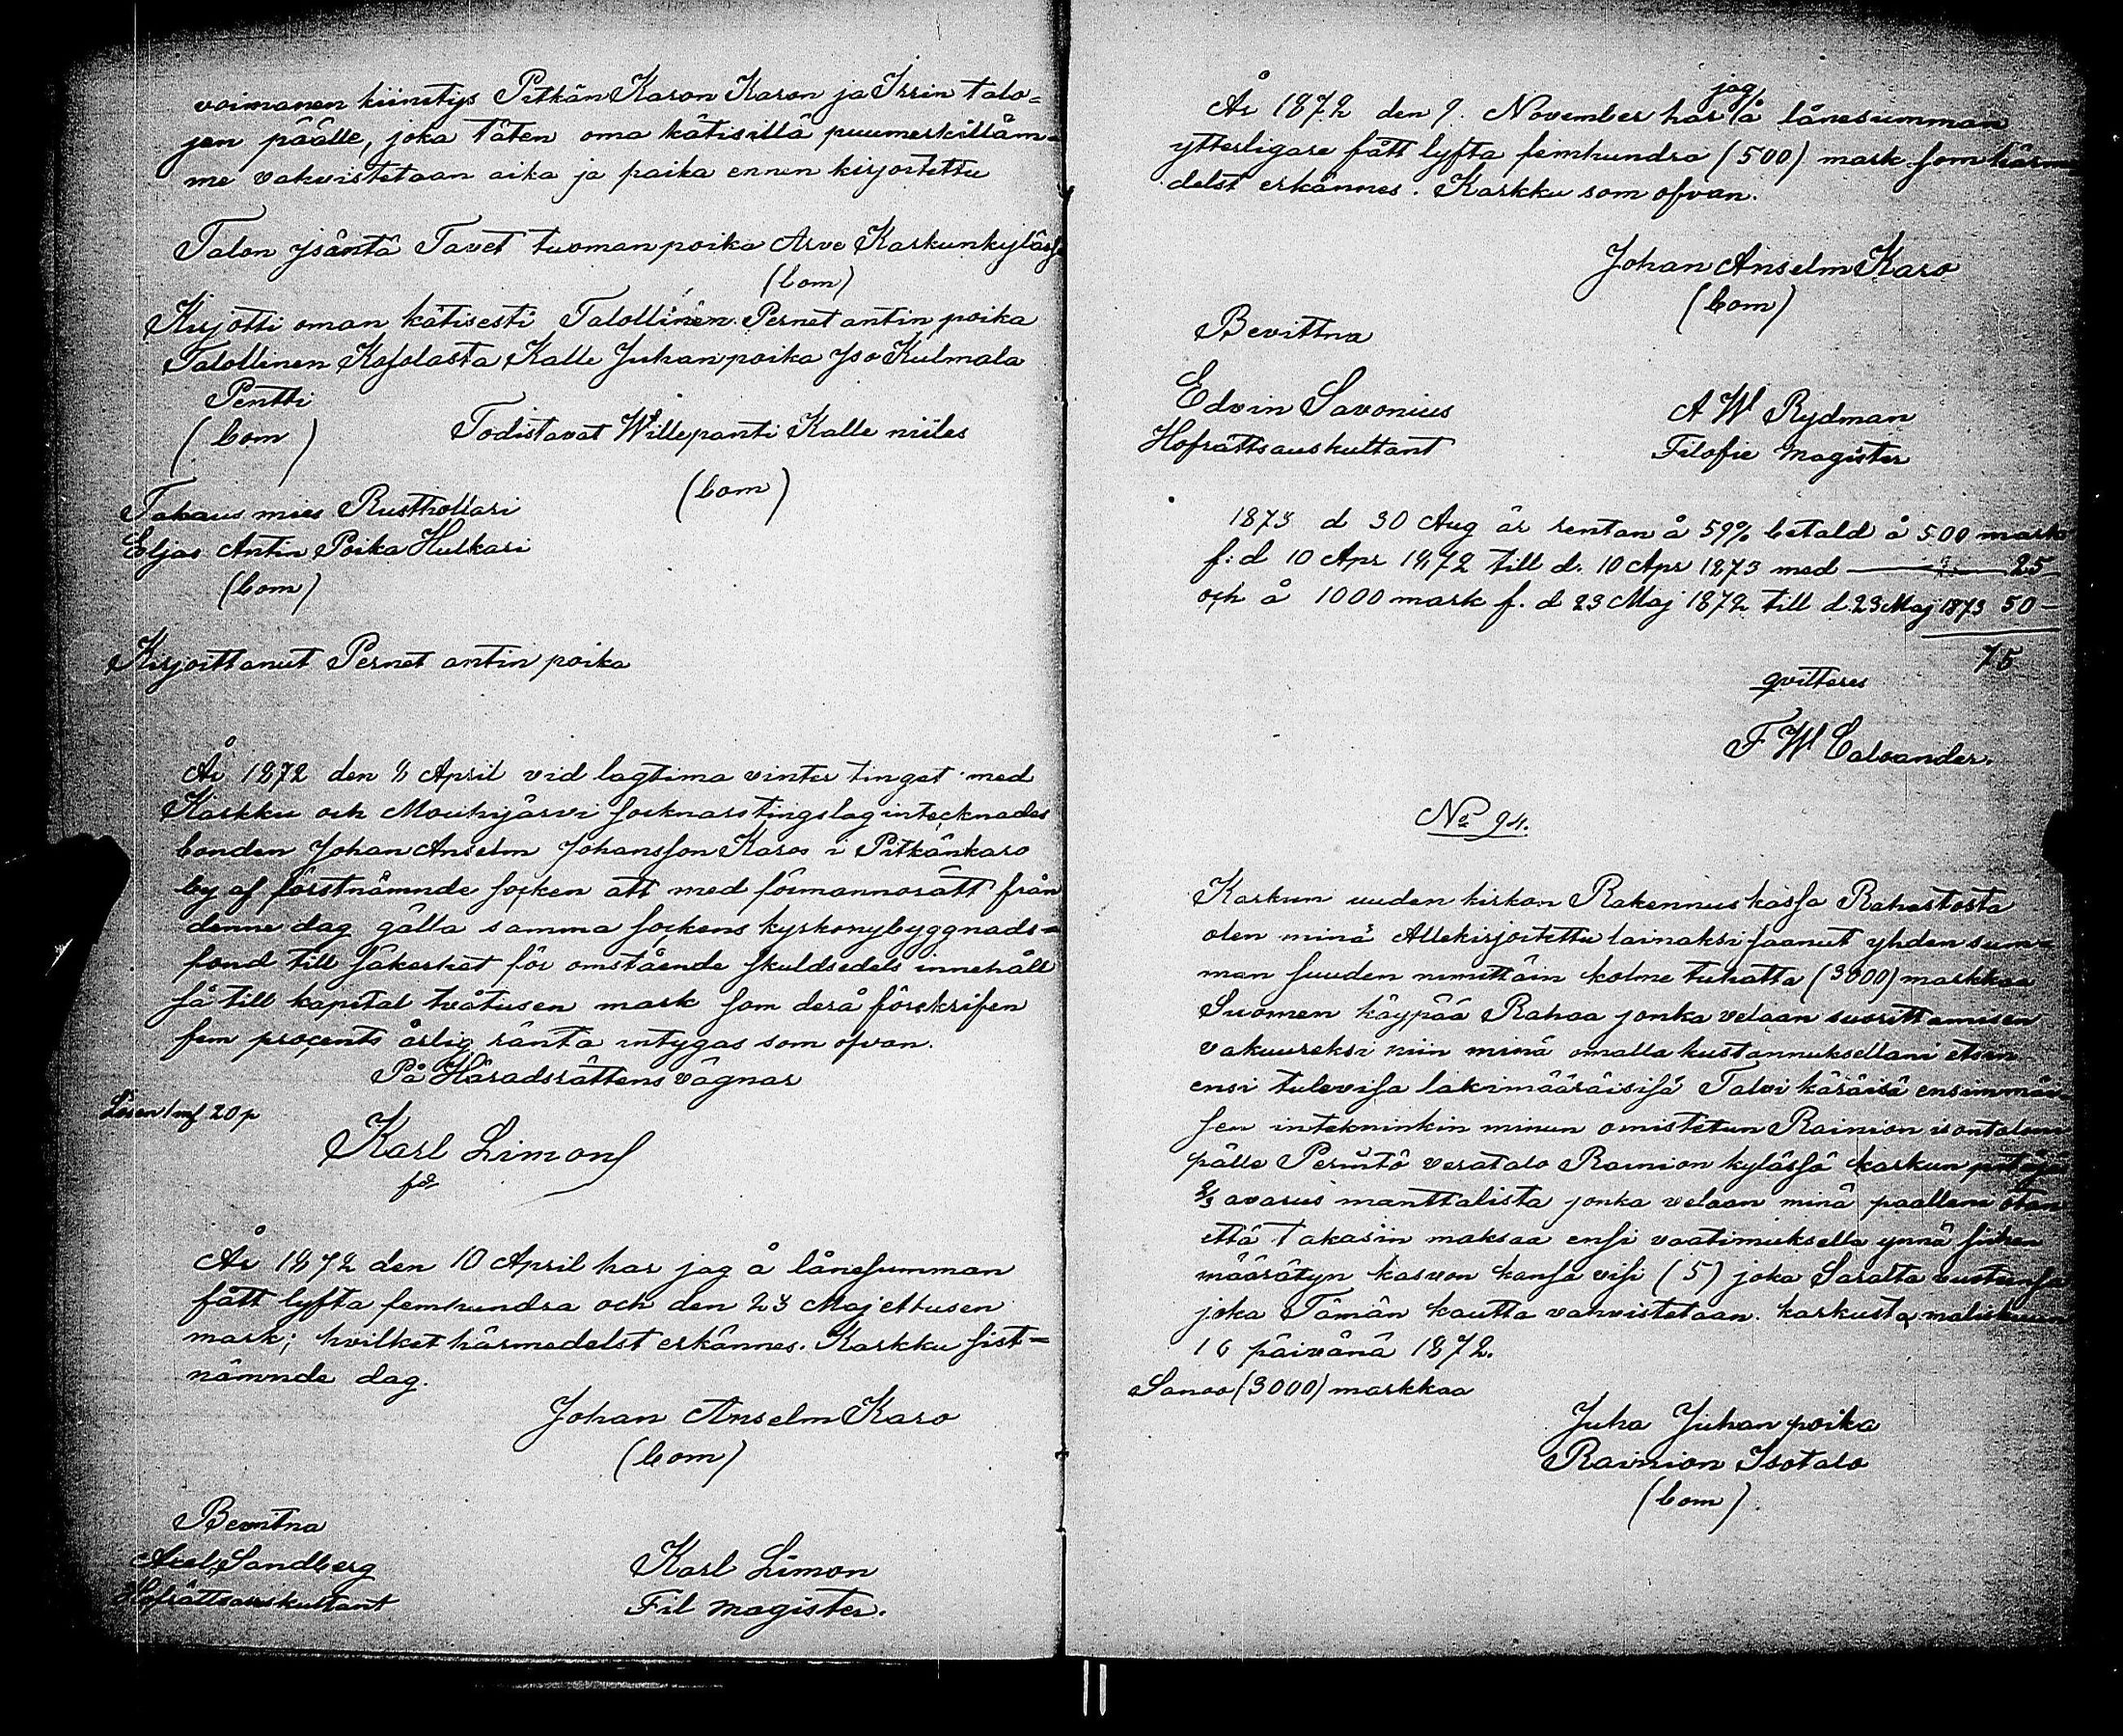 voimanen kiinitys Pitkän Karon Karon ja Irrin talo=
jen päälle, joka täten oma kätisillä puumerkilläm=
me vahvistetaan aika ja paika ennen kirjoitettu
Talon jsäntä Tavet tuomanpoika Arve Karkunkyläs
(bom)
Kirjotti oman kätisesti Talollinen Pernet antin poika
Talollinen Kojolasta Kalle Juhanpoika Jso Kulmala
Pentti
(bom)
Todistavat Willepanti Kalle niiles
(bom)
Takaus mies Rusthollari
Eljas Antin Poika Hulkari
(bom)
Kirjoittanut Pernet antin poika
År 1872 den 8 April vid lagtima vinter tinget med
Karkku och Mouhijärvi socknars tingslag intecknades
bonden Johan Anselm Johansson Karos i Pitkänkaro
by af förstnämnde socken att med förmånsrätt från
denne dag gälla samma sockens kyrkonybyggnads=
fond till säkerhet för omstående skuldsedels innehåll
så till kapital tvåtusen mark som derå föreskrifen
fem procents årlig ränta intygas som ofvan.
På Häradsrättens vägnar
Lösen 1 mf 20 p
Karl Limon
År 1872 den 10 April har jag å lånesumman
fått lyfta femhundra och den 23 Maj ettusen
mark; hvilket härmedelst erkännes. Karkku sist=
nämnde dag.
Johan Anselm Karo
(bom)
Bevitna
Axel Sandberg
Hofrättsauskultant
Karl Limon
Fil magister.
jag
År 1872 den 9. November har å lånesumman
ytterligare fått lyfta femhundra (500) mark som härme
delst erkännes. Karkku som ofvan.
Johan Anselm Karo
(bom)
Bevittna
Edvin Savonius
Hofrättsauskultant
A W Rydman
Filofie magister
1873 d 30 Aug är rentan å 5% betald å 500 mark
f: d 10 Apr 1872 till d. 10 Apr 1873 med 25
och å 1000 mark f. d 23 Maj 1872 till d. 23 Maj 1873 50 -
75
qvitteres
F W Calvander.
No 94.
Karkun uuden kirkon Rakennus kassa Rahastosta
olen minä Allekirjoitettu lainaksi saanut yhden sum=
man suuden nimittäin kolme tuhatta (3000) markkaa
Suomen käypää Rahaa jonka velaan suorittamisen
vakuureksi niin minä omalla kustannuksellani etsin
ensi tulevisa lakimääräisisä Talvi käräisä ensimmäi
sen intekninkin minun omistetun Rainion isontalon
pälle Perintö veratalo Rainion kylässä karkun pitäjä
2/3 avarus manttalista jonka velaan minä paallem otan
että takasin maksaa ensi vaatimuksella ynnä siihen
määrätyn kasvon kansa visi (5) joka Saralta vuotensa
joka Tämän kautta vahvistetaan. karkusta maliskuun
16 päivänä 1872.
Sanoo (3000) markkaa
Juha Juhan poika
Rainion Isotalo
(bom)